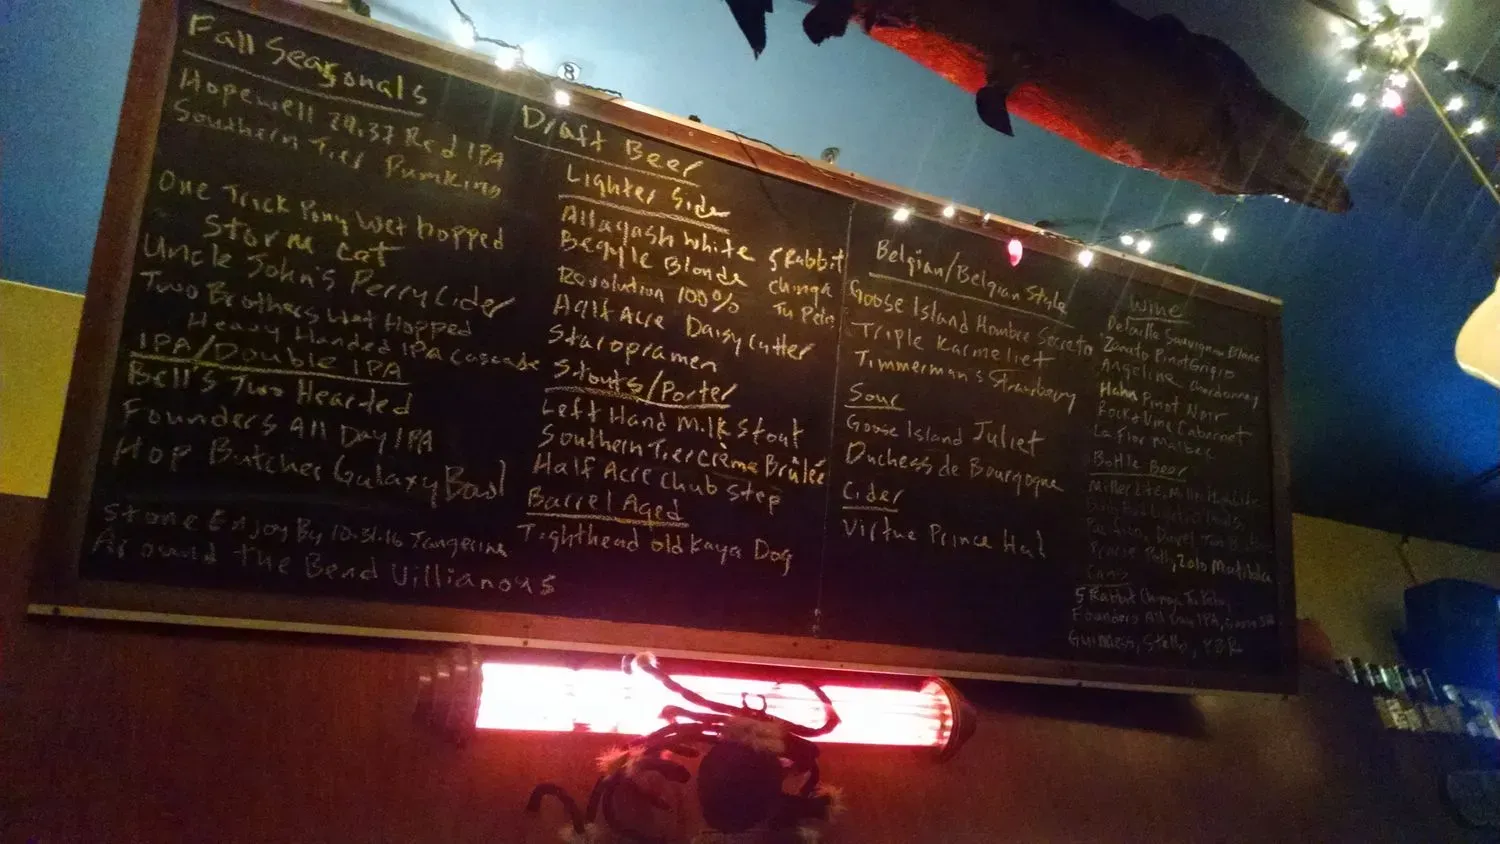 Fall Seasonals
Hopewell 24.37 Red IPA
Southern Tier Pumking
One Trick Pony Wet hopped
Storm Cat
Uncle John's Perry Cider
Two Brothers Wet Hopped
Heavy Handed IPA Cascade
IPA/Double IPA
Bell's Two Hearted
Founders All Day IPA
Hop Butcher Galaxy Bowl
Stone Enjoy By 10.31.16 Tangerine
Around the Bend Villianous
Draft Beer
Lighter Side
Allagash White
Begyle Blonde
Revolution 100%
Half Acre Daisy Cutter
Staropramen
5 Rabbit
Chinga
Tu Pelo
Stouts/Porter
Left Hand Milk Stout
Southern Tier Crème Brûlée
Half Acre Chub Step
Barrel Aged
Tighthead old Kaya Dog
Belgian/Belgian Style
Goose Island Hombre Secreto
Triple Karmeliet
Timmerman's Strawberry
Sour
Goose Island Juliet
Duchess de Bourgogne
Cider
Virtue Prince Hal
Wine
Sauvignon Blanc
Zonato Pinot Grigio
Angeline Chardonnay
Hahn Pinot Noir
Rock & Vine Cabernet
La Flor Malbec
Bottle Beer
Miller Lite, Miller High Life
Zolo Matilda
Cans
5 Rabbit Chinga Tu Pelo,
Founders All Day IPA, Goose
Guinness, Stella, PBR